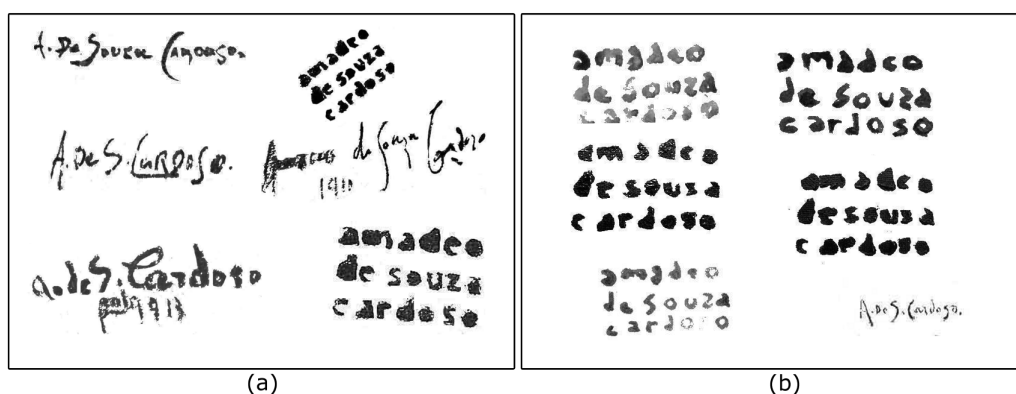 A. De Souza Cardoso.
amadeo
de souza
cardoso
A. De S. Cardoso.
de Souza Cardoso
1911
a. de S. Cardoso
1913
amadeo
de souza
cardoso
(a)
amadeo
de souza
cardoso
amadeo
de souza
cardoso
amadeo
de sousa
cardoso
amadeo
de sousa
cardoso
amadeo
de souza
cardoso
A. De S. Cardoso.
(b)